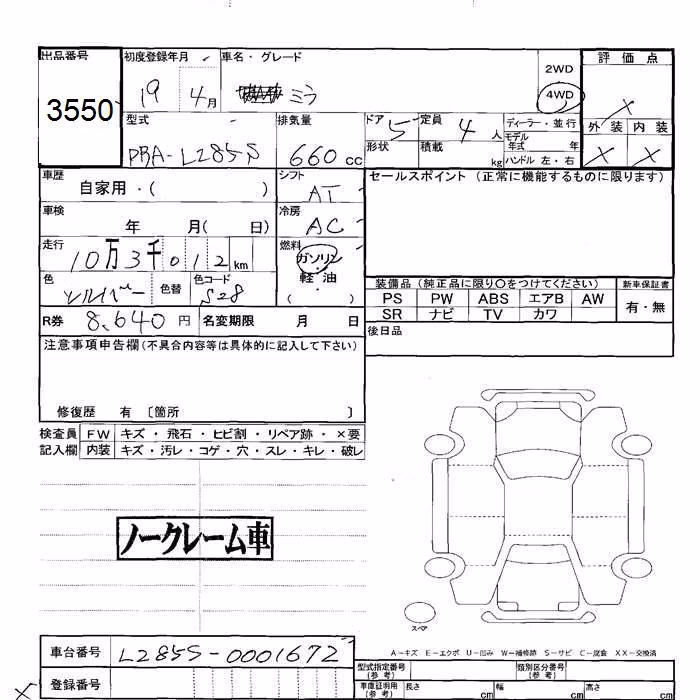 出品番号 初度登録年月 車名・グレード 評価点
3550 19 4月 ミラ 2WD 4WD X
型式 排気量 ドア 5 定員 4人 ディーラー・並行 外装 内装
DBA-L285S 660cc 形状 積載 kg モデル年式 年 ハンドル 左・右 X X
車歴 自家用・( ) シフト AT セールスポイント (正常に機能するものに限ります)
車検 年 月( 日) 冷房 AC
走行 10万3千012km 燃料 ガソリン・軽油 ( )
色 シルバー 色替 色コード S28 装備品 (純正品に限り〇をつけてください) 新車保証書
PS PW ABS エアB AW 有・無
R券 8,640円 名変期限 月 日 SR ナビ TV カワ
注意事項申告欄(不具合内容等は具体的に記入して下さい) 後日品
修復歴 有 〔箇所 〕
検査員 FW キズ・飛石・ヒビ割・リペア跡・×要
記入欄 内装 キズ・汚レ・コゲ・穴・スレ・キレ・破レ
ノークレーム車
スペア
A-キズ E-エクボ U-凹み W-補修跡 S-サビ C-腐食 XX-交換済
車台番号 L285S-0001672 型式指定番号(参考) 類別区分番号(参考)
登録番号 車庫証明用(参考) 長さ cm 幅 cm 高さ cm
X